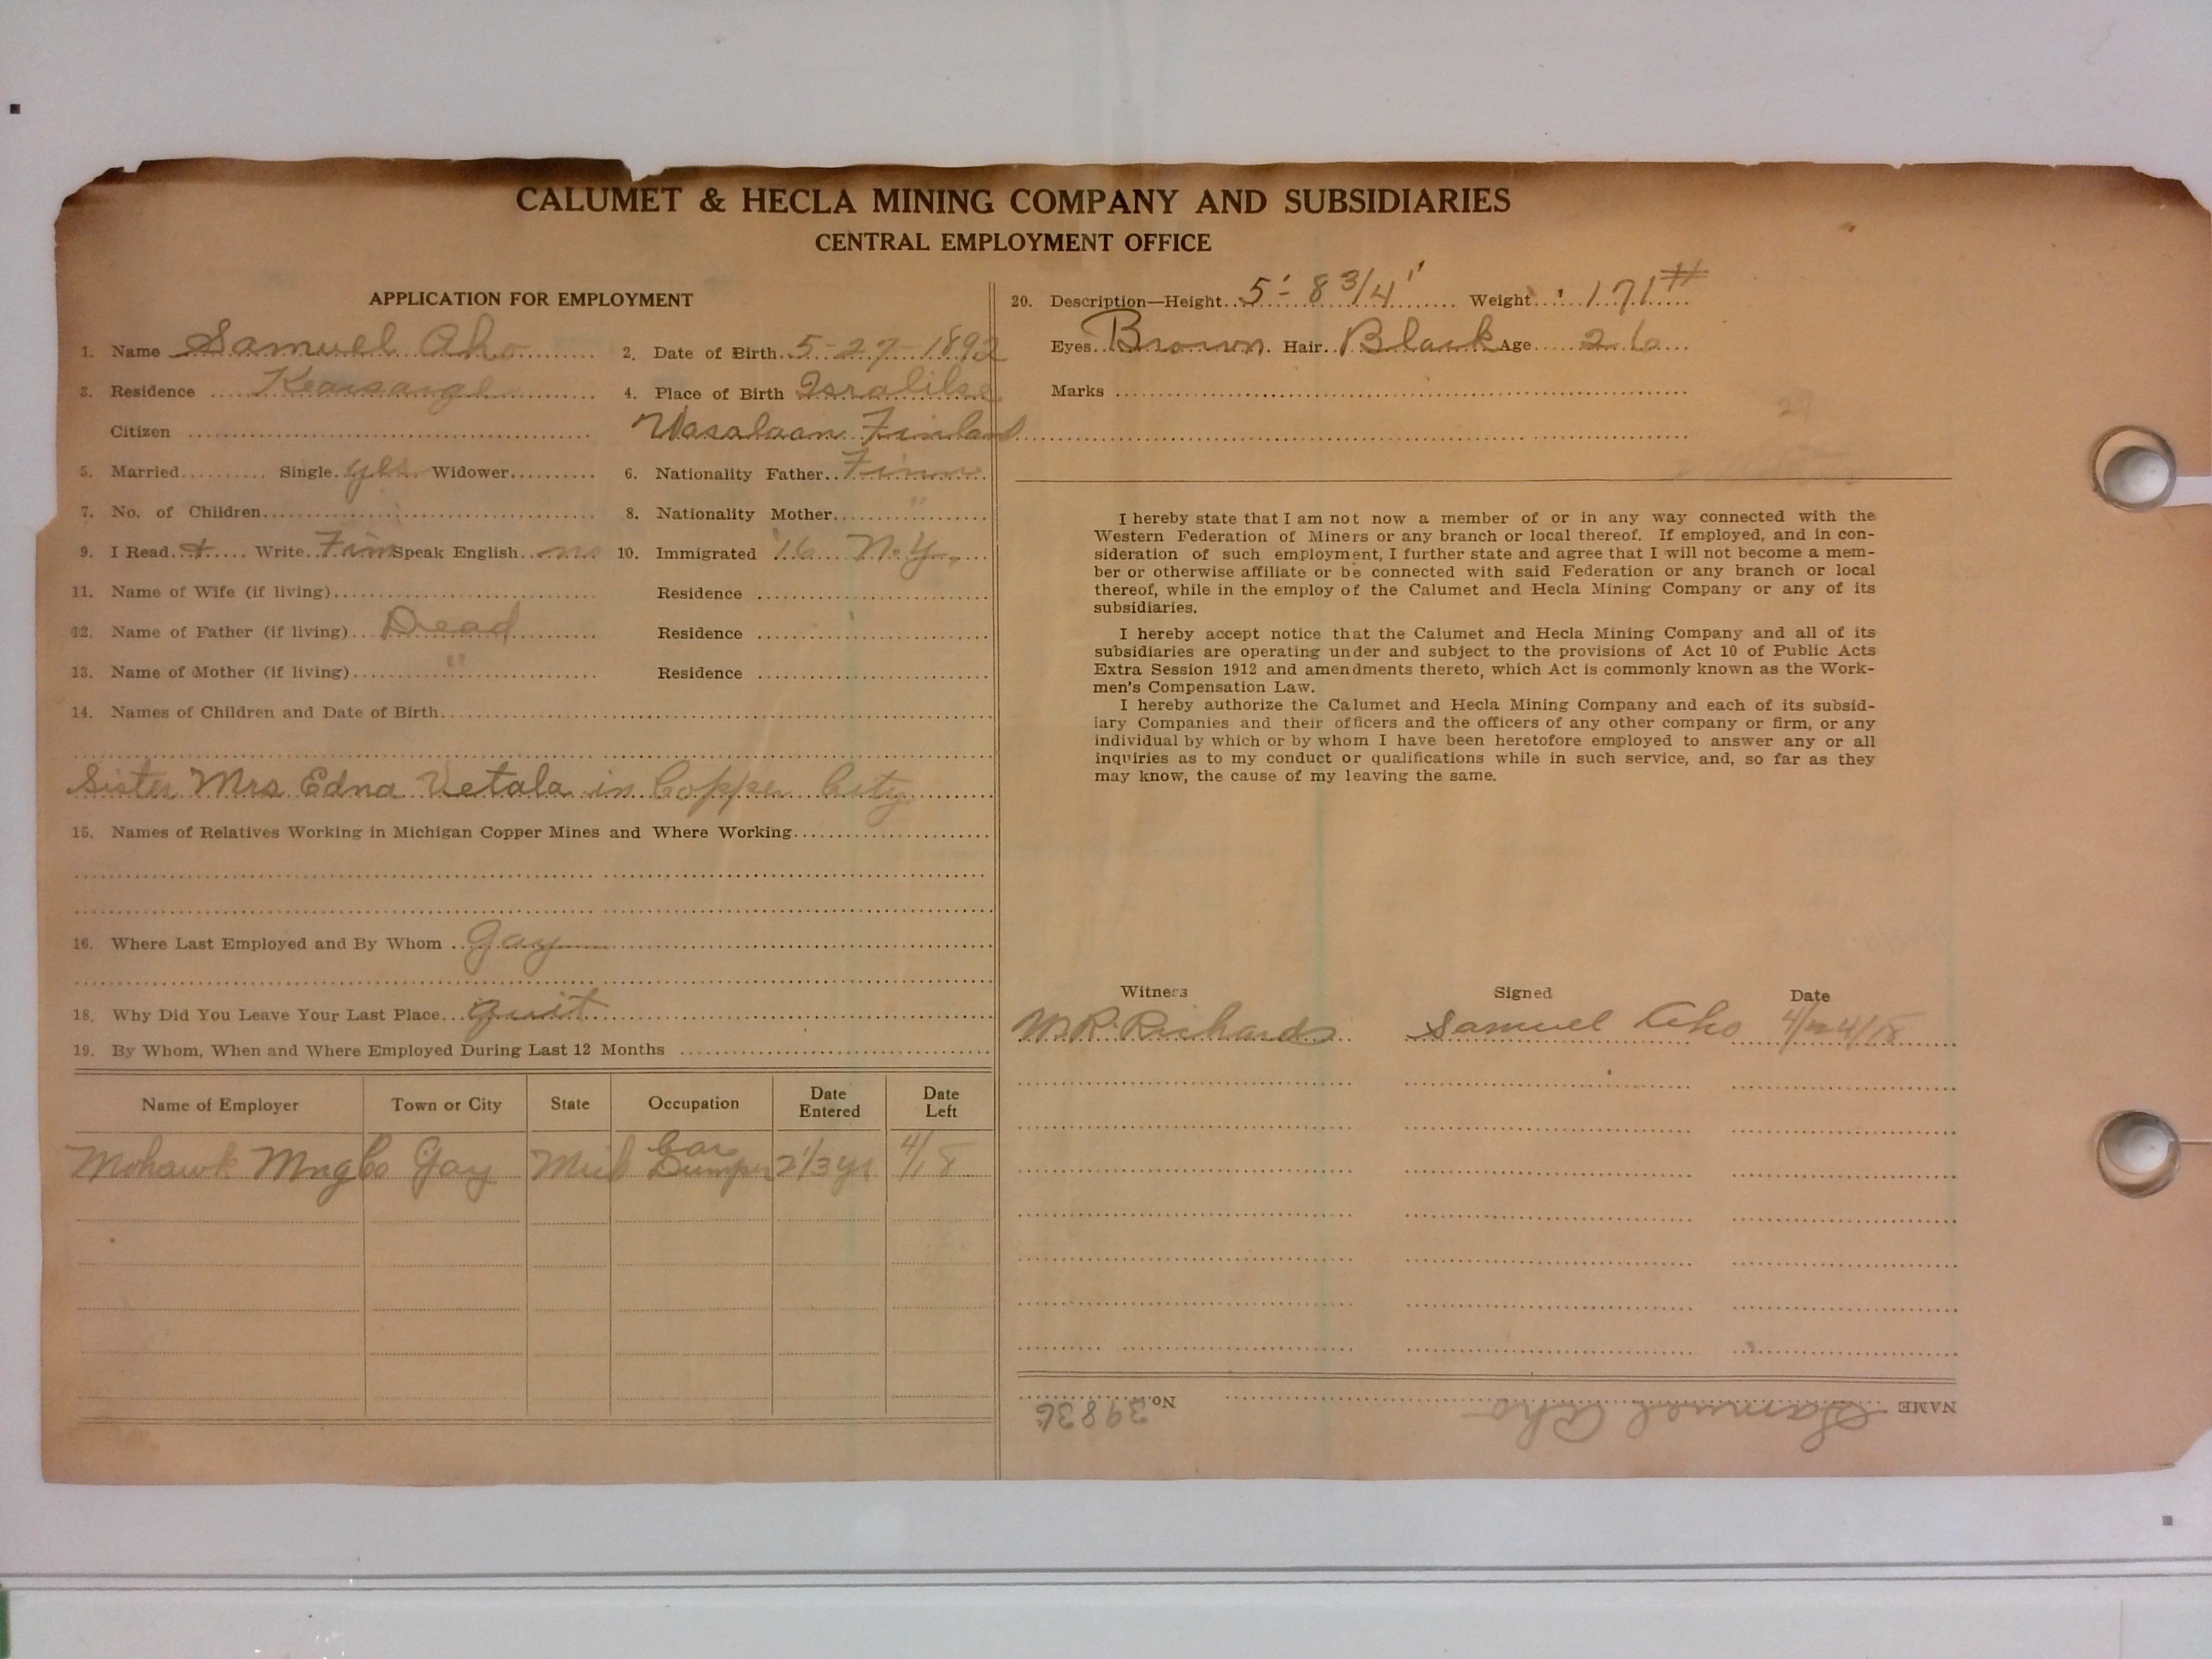 CALUMET & HECLA MINING COMPANY AND SUBSIDIARIES
CENTRAL EMPLOYMENT OFFICE
APPLICATION FOR EMPLOYMENT
1. Name Samuel Aho 2. Date of Birth 5-27-1892
3. Residence Kearsarge 4. Place of Birth
Citizen Wasalaan Finland
5. Married Single yes Widower 6. Nationality Father Finn
7. No. of Children 8. Nationality Mother "
9. I Read + Write Finn Speak English no 10. Immigrated '16 N.Y.
11. Name of Wife (if living) Residence
12. Name of Father (if living) Dead Residence
13. Name of Mother (if living) " Residence
14. Names of Children and Date of Birth
Sister Mrs Edna Vetala in Copper City
15. Names of Relatives Working in Michigan Copper Mines and Where Working
16. Where Last Employed and By Whom Gay
18. Why Did You Leave Your Last Place quit
19. By Whom, When and Where Employed During Last 12 Months
Name of Employer Town or City State Occupation Date Entered Date Left
Mohawk Mng Co Gay Mich Car Dumper 2 1/3 yr 4/18
20. Description—Height 5'- 8 3/4" Weight 171#
Eyes Brown Hair Black Age 26
Marks
I hereby state that I am not now a member of or in any way connected with the
Western Federation of Miners or any branch or local thereof. If employed, and in con-
sideration of such employment, I further state and agree that I will not become a mem-
ber or otherwise affiliate or be connected with said Federation or any branch or local
thereof, while in the employ of the Calumet and Hecla Mining Company or any of its
subsidiaries.
I hereby accept notice that the Calumet and Hecla Mining Company and all of its
subsidiaries are operating under and subject to the provisions of Act 10 of Public Acts
Extra Session 1912 and amendments thereto, which Act is commonly known as the Work-
men's Compensation Law.
I hereby authorize the Calumet and Hecla Mining Company and each of its subsid-
iary Companies and their officers and the officers of any other company or firm, or any
individual by which or by whom I have been heretofore employed to answer any or all
inquiries as to my conduct or qualifications while in such service, and, so far as they
may know, the cause of my leaving the same.
Witness Signed Date
M.R. Richards Samuel Aho 4/24/18
NAME Samuel Aho No. 39836